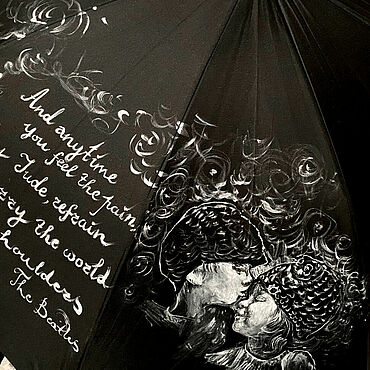 And anytime
you feel the pain,
Jude, refrain
the world
shoulders
The Beatles